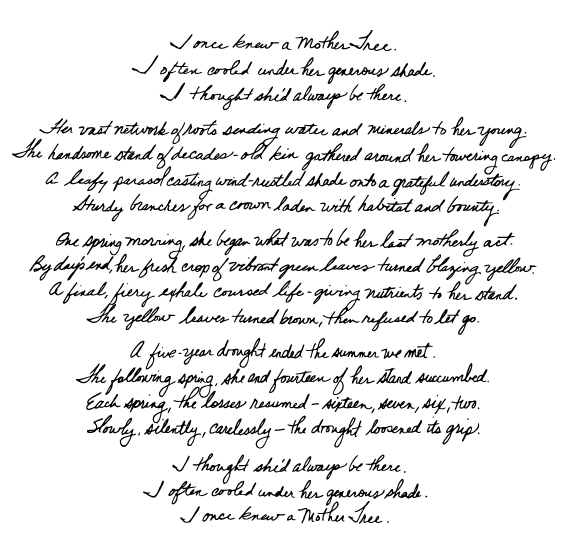 I once knew a Mother Tree.
I often cooled under her generous shade.
I thought she'd always be there.
Her vast network of roots sending water and minerals to her young.
The handsome stand of decades-old kin gathered around her towering canopy.
A leafy parasol casting wind-rustled shade onto a grateful understory.
Sturdy branches for a crown laden with habitat and bounty.
One spring morning, she began what was to be her last motherly act.
By day's end, her fresh crop of vibrant green leaves turned blazing yellow.
A final, fiery exhale coursed life-giving nutrients to her stand.
The yellow leaves turned brown, then refused to let go.
A five-year drought ended the summer we met.
The following spring, she and fourteen of her stand succumbed.
Each spring, the losses resumed – sixteen, seven, six, two.
Slowly, silently, carelessly – the drought loosened its grip.
I thought she'd always be there.
I often cooled under her generous shade.
I once knew a Mother Tree.